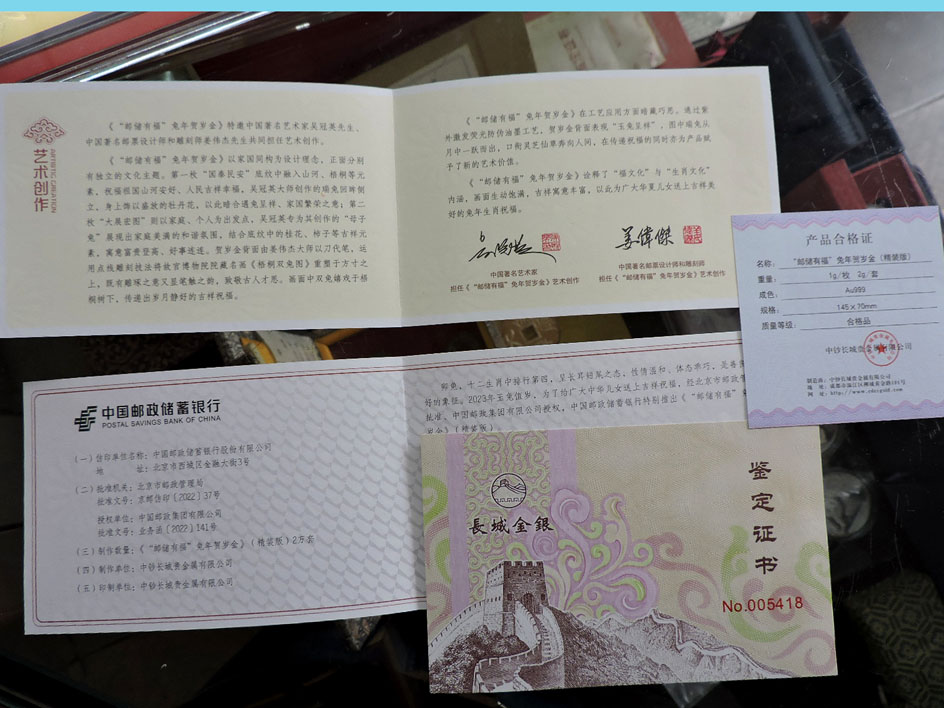 艺术创作
ARTISTIC CREATION
《“邮储有福”兔年贺岁金》特邀中国著名艺术家吴冠英先生、
中国著名邮票设计师和雕刻师姜伟杰先生共同担任艺术创作。
《“邮储有福”兔年贺岁金》以家国同构为设计理念，正面分别
有独立的文化主题。第一枚“国泰民安”底纹中融入山河、梧桐等元
素，祝福祖国山河安好、人民吉祥幸福，吴冠英大师创作的瑞兔回眸侧
立，身上饰以盛放的牡丹花，以此暗合遇兔呈祥、家国繁荣之意；第二
枚“大展宏图”则以家庭、个人为出发点，吴冠英专为其创作的“母子
兔”展现出家庭美满的和谐氛围，结合底纹中的桂花、柿子等吉祥元
素，寓意富贵登高、好事连连。贺岁金背面由姜伟杰大师以刀代笔，运
用点线雕刻技法将故宫博物院院藏名画《梧桐双兔图》重塑于方寸之
上，既有雕琢之意又显笔触之韵，致敬古人才思。画面中双兔嬉戏于梧
桐树下，传递出岁月静好的吉祥祝福。
《“邮储有福”兔年贺岁金》在工艺应用方面暗藏巧思。通过紫
外激发荧光防伪油墨工艺，贺岁金背面表现“玉兔呈祥”，图中瑞兔从
月中一跃而出，口衔灵芝仙草奔向人间，在传递祝福的同时亦为产品赋
予了新的艺术价值。
《“邮储有福”兔年贺岁金》诠释了“福文化”与“生肖文化”
内涵，画面生动饱满，吉祥寓意丰富，以此为广大华夏儿女送上吉祥美
好的兔年生肖祝福。
姜偉傑
中国著名艺术家
担任《“邮储有福”兔年贺岁金》艺术创作
中国著名邮票设计师和雕刻师
担任《“邮储有福”兔年贺岁金》艺术创作
产品合格证
名称： “邮储有福”兔年贺岁金（精装版）
重量： 1g/枚 2g/套
成色： Au999
规格： 145×70mm
质量等级： 合格品
中钞长城贵金属有限公司
制造商：中钞长城贵金属有限公司
中国邮政储蓄银行
POSTAL SAVINGS BANK OF CHINA
（一）信印单位名称：中国邮政储蓄银行股份有限公司
地 址：北京市西城区金融大街3号
（二）批准机关：北京市邮政管理局
批准文号：京邮信印〔2022〕37号
授权单位：中国邮政集团有限公司
批准文号：业务函〔2022〕141号
（三）制作数量：《“邮储有福”兔年贺岁金》（精装版）2万套
（四）制作单位：中钞长城贵金属有限公司
（五）印制单位：中钞长城贵金属有限公司
卯兔，十二生肖中排行第四，呈长耳短尾之态，性情温和、体态乖巧，是善
好的象征。2023年玉兔值岁，为了给广大中华儿女送上吉祥祝福，经北京市邮政管
批准、中国邮政集团有限公司授权，中国邮政储蓄银行特别推出《“邮储有福”兔
岁金》（精装版）
長城金銀
鉴定证书
No.005418